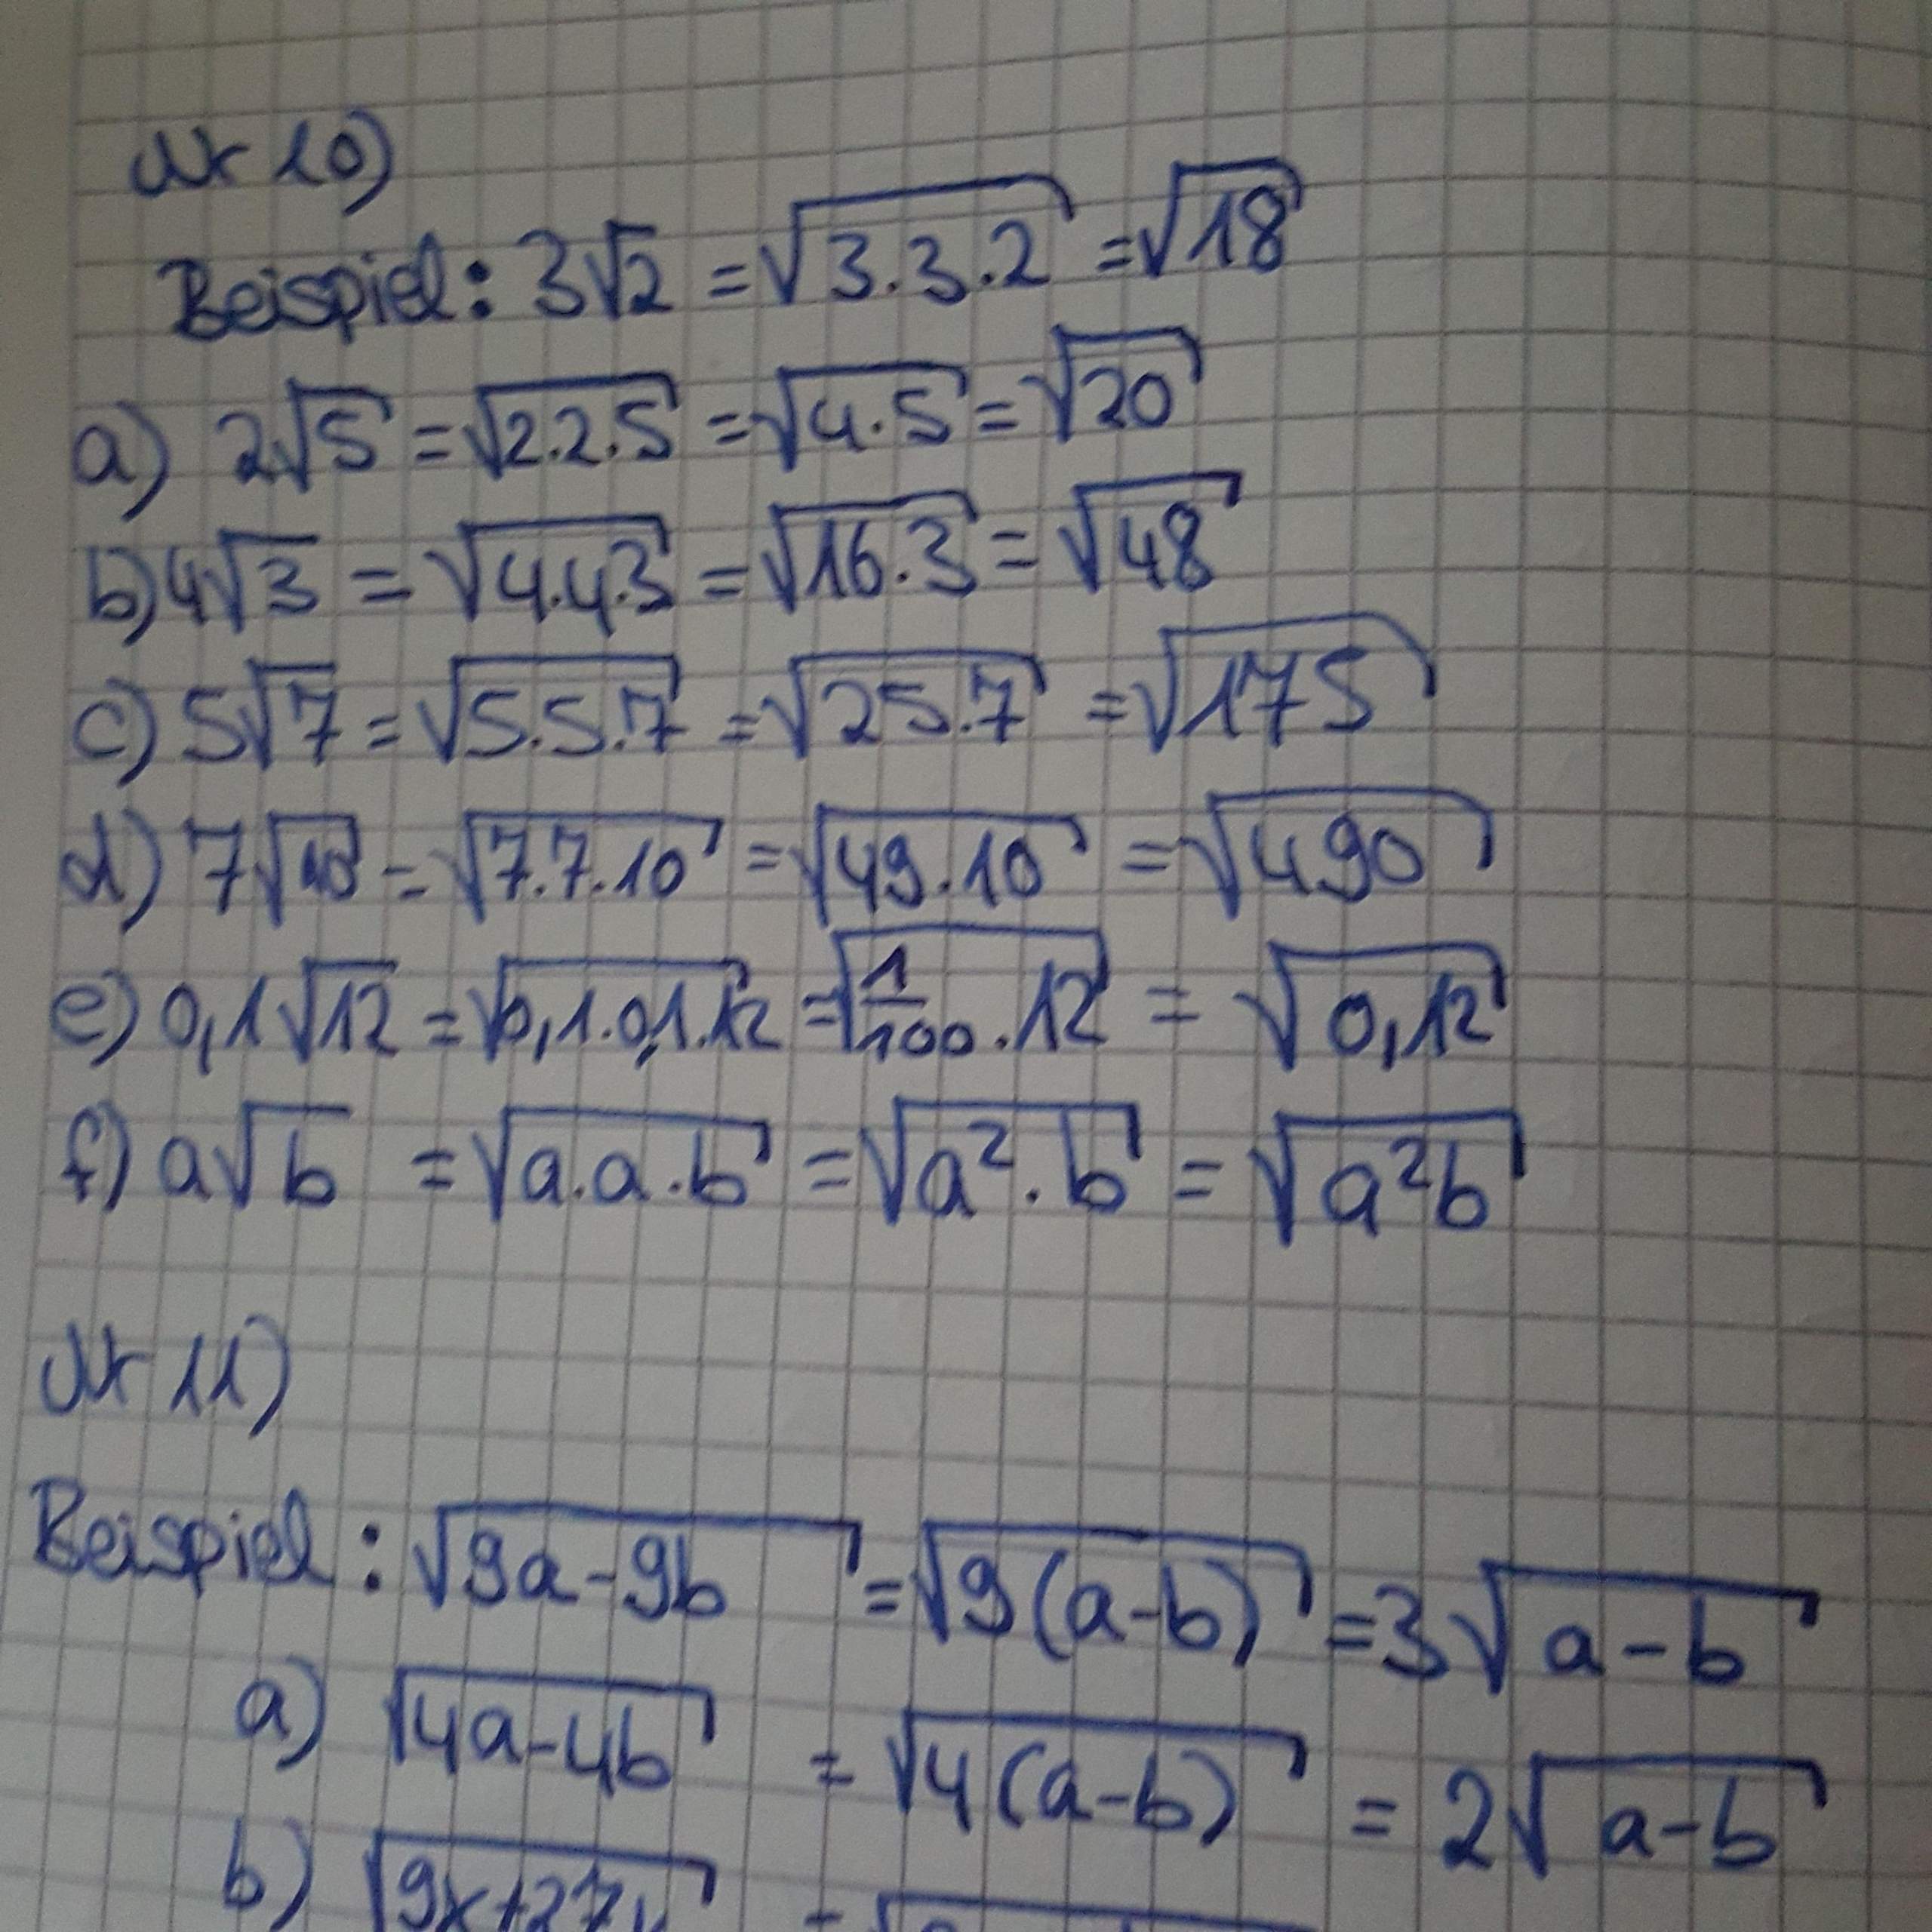 Nr 10)
Beispiel: 3√2 = √3·3·2 = √18
a) 2√5 = √2·2·5 = √4·5 = √20
b) 4√3 = √4·4·3 = √16·3 = √48
c) 5√7 = √5·5·7 = √25·7 = √175
d) 7√10 = √7·7·10 = √49·10 = √490
e) 0,1√12 = √0,1·0,1·12 = √1/100·12 = √0,12
f) a√b = √a·a·b = √a²·b = √a²b
Nr 11)
Beispiel: √9a-9b = √9(a-b) = 3√a-b
a) √4a-4b = √4(a-b) = 2√a-b
b) √9x+27y =